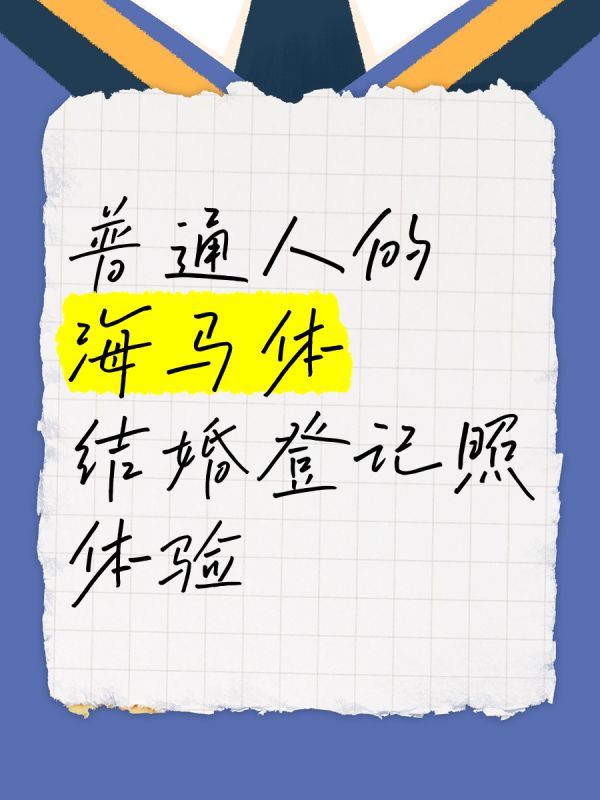 普通人的
海马体
结婚登记照
体验